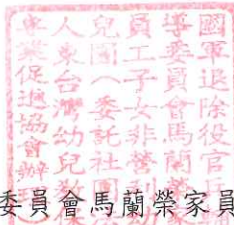 國軍退除役官兵輔
導委員會馬蘭榮家
員工子女非營利幼
兒園(委託社團法
人東台灣幼兒教保
專業促進協會辦理)
委員會馬蘭榮家員